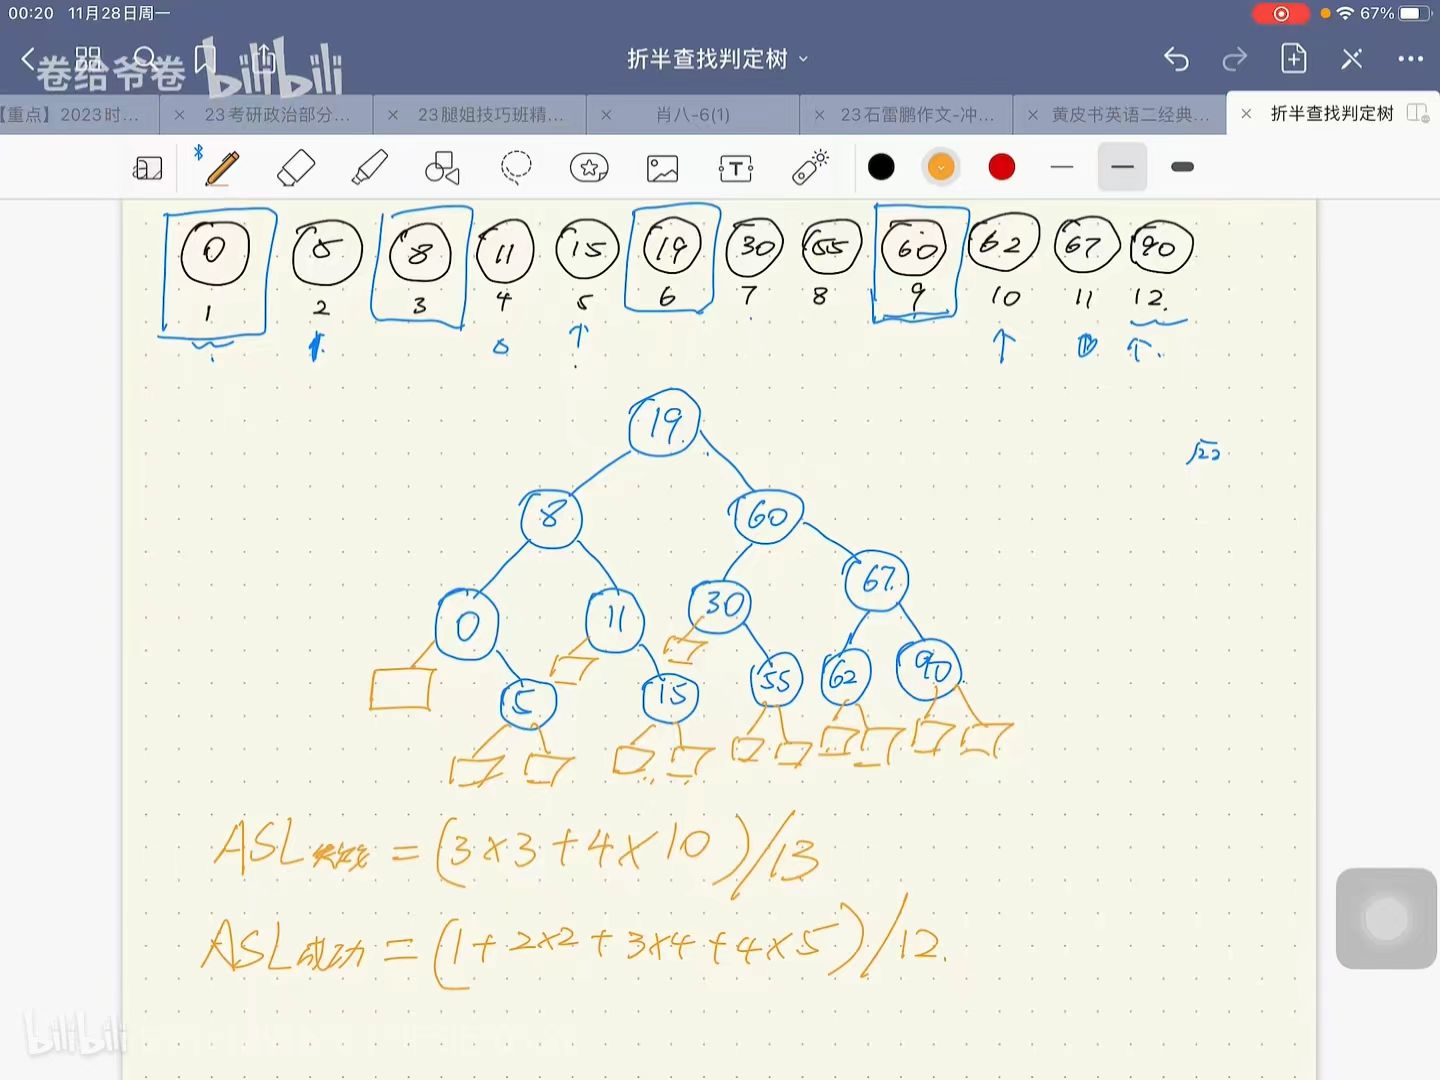 00:20 11月28日周一 67%
卷给爷卷 bilibili
折半查找判定树
【重点】2023时... × 23考研政治部分... × 23腿姐技巧班精... × 肖八-6(1) × 23石雷鹏作文-冲... × 黄皮书英语二经典... × 折半查找判定树
0 5 8 11 15 19 30 55 60 62 67 90
1 2 3 4 5 6 7 8 9 10 11 12
19
8 60
0 11 30 67
5 15 55 62 90
ASL = (3×3+4×10)/13
ASL成功 = (1+2×2+3×4+4×5)/12.
bilibili